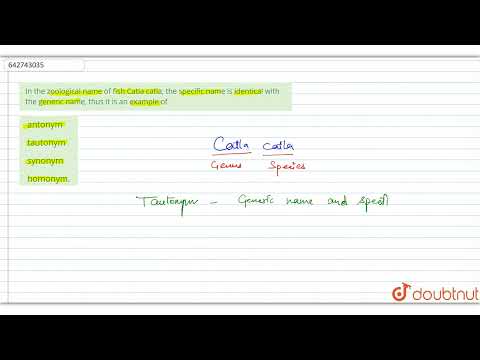 642743035
In the zoological name of fish Catla catla, the specific name is identical with
the generic name, thus it is an example of
antonym
tautonym
synonym
homonym.
Catla catla
Genus Species
Tautonym - Generic name and specifi
doubtnut